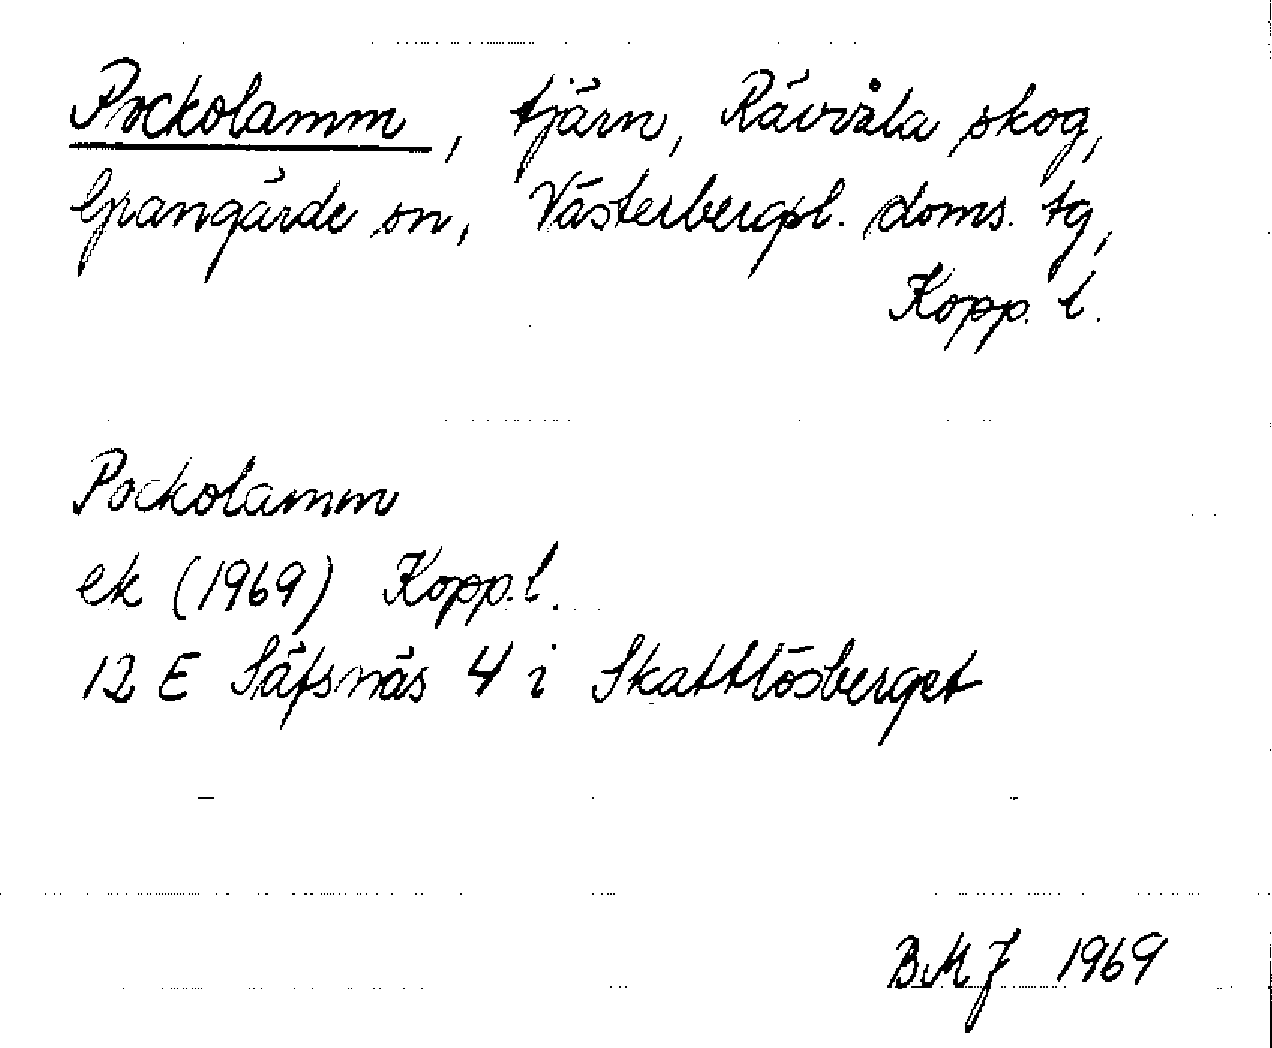 Pockolamm, tjärn, Rävvåla skog,
Grangärde sn, Västerbergsl. doms. tg,
Kopp. l.
Pockolamm
ek (1969) Kopp. l.
12 E Säfsnäs 4 i Skattlösberget
BMJ 1969